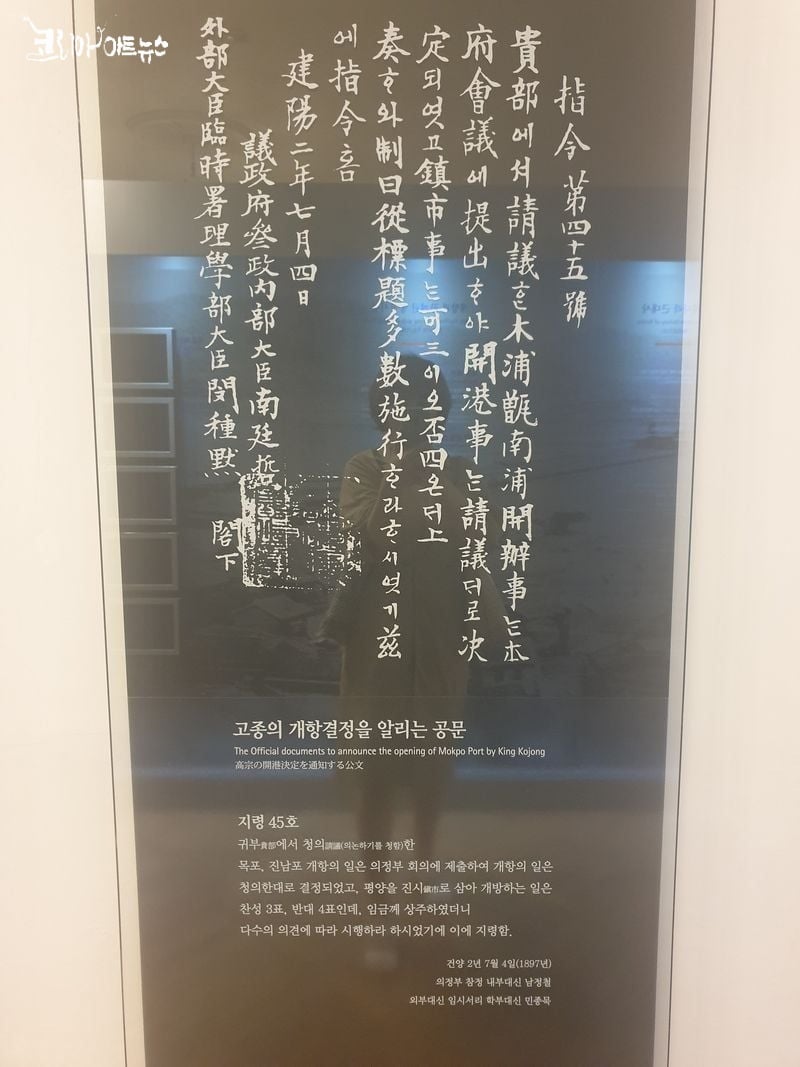 코리아아트뉴스
指令第四十五號
貴部에셔請議ᄒᆞᆫ木浦甑南浦開辦事ᄂᆞᆫ本
府會議에提出ᄒᆞ야開港事ᄂᆞᆫ請議더로決
定되엿고鎮市事ᄂᆞᆫ可三이오否四온더上
奏ᄒᆞ와制曰從標題多數施行ᄒᆞ라ᄒᆞ시엿기玆
에指令홈
建陽二年七月四日
議政府叅政內部大臣南廷哲
外部大臣臨時署理學部大臣閔種默 閣下
고종의 개항결정을 알리는 공문
The Official documents to announce the opening of Mokpo Port by King Kojong
高宗の開港決定を通知する公文
지령 45호
귀부貴部에서 청의請議(의논하기를 청함)한
목포, 진남포 개항의 일은 의정부 회의에 제출하여 개항의 일은
청의한대로 결정되었고, 평양을 진시鎭市로 삼아 개방하는 일은
찬성 3표, 반대 4표인데, 임금께 상주하였더니
다수의 의견에 따라 시행하라 하시었기에 이에 지령함.
건양 2년 7월 4일(1897년)
의정부 참정 내부대신 남정철
외부대신 임시서리 학부대신 민종묵